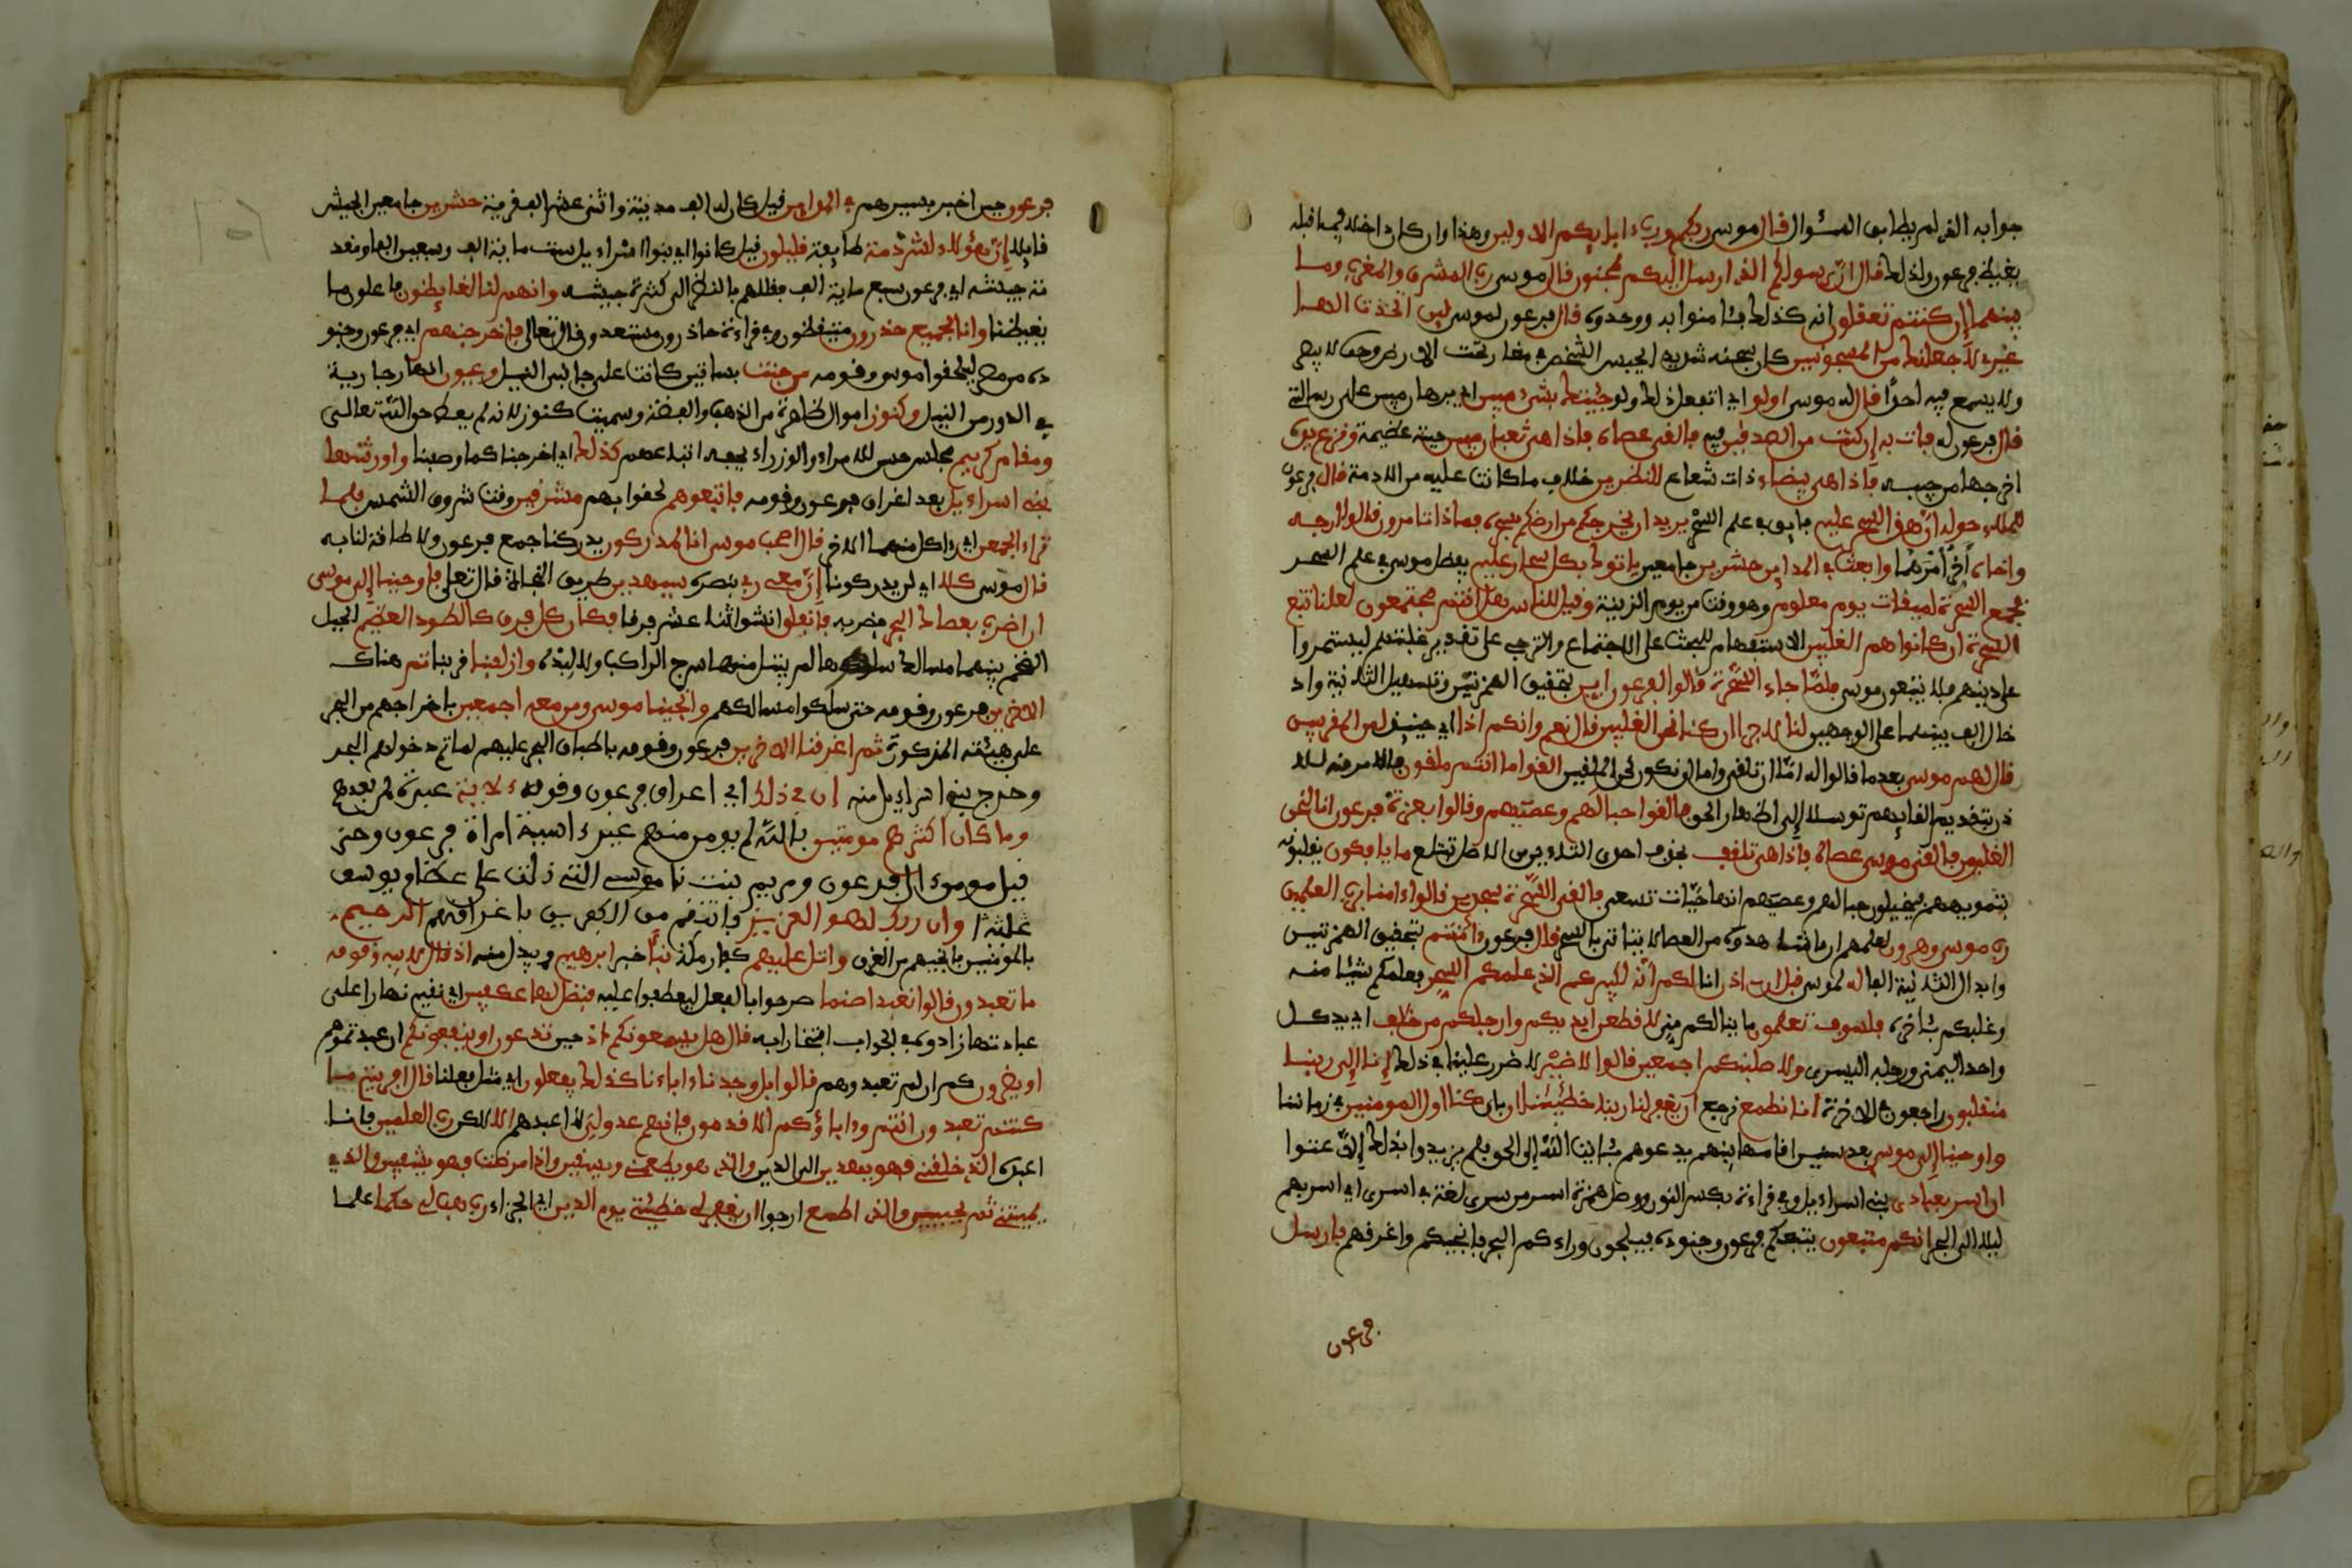 جوابه الذي لم يطابق السؤال قال موسى ربكم ورب ءابايكم الاولين وهذا وان كان داخلا فيما قبله
يغيظ فرعون ولذلك قال ان رسولكم الذي ارسل اليكم لمجنون قال موسى رب المشرق والمغرب وما
بينهما إن كنتم تعقلون انه كذلك فئامنوا به ووحدوه قال فرعون لموسى لين اتخذت الها
غيري لأجعلنك من المسجونين كان سجنه شديدا يحبس الشخص في مغار تحت الارض وحده لا يبصر
ولا يسمع فيه احدًا قال له موسى اولو اي اتفعل ذلك ولو جيتك بشيء مبين اي برهان مبين على رسالتي
قال فرعون له فات به إن كنت من الصدقين فيه فالقى عصاه فإذا هي ثعبان مبين حية عظيمة ونزع يده
اخرجها من جيبه فإذا هي بيضاء ذات شعاع للنظرين خلاف ما كانت عليه من الادمة قال فرعون
للملإ حوله ان هذا لسحر عليم فايق في علم السحر يريد ان يخرجكم من ارضكم بسحره فماذا تامرون قالوا ارجه
واخاه أخر أمرهما وابعث في المداين حشرين جامعين ياتوك بكل سحار عليم يفضل موسى في علم السحر
فجمع السحرة لميقات يوم معلوم وهو وقت من يوم الزينة وقيل للناس هل انتم مجتمعون لعلنا نتبع
السحرة ان كانوا هم الغلبين الاستفهام للحث على الاجتماع والترجي على تقدير غلبتهم ليستمروا
على دينهم فلا يتبعون موسى فلما جاء السحرة قالوا لفرعون اين بتحقيق الهمزتين وتسهيل الثانية واد
خال الف بينهما على الوجهين لنا لاجرا ان كنا نحن الغلبين قال نعم وانكم اذا اي حينيذ لمن المقربين
قال لهم موسى بعدما قالوا له امّا ان تلقي واما ان نكون نحن الملقين القوا ما انتم ملقون فالامر منه للا
ذن بتقديم القايهم توسلا إلى اظهار الحق فالقوا حبالهم وعصيهم وقالوا بعزة فرعون انا لنحن
الغلبون فالقى موسى عصاه فإذا هي تلقف بحذف احدى التاءين من الاصل تبتلع ما يافكون يقلبونه
بتمويههم فيخيلون حبالهم وعصيهم انها حيّات تسعى فالقي السحرة سجدين قالوا ءامنا برب العلمين
رب موسى وهرون لعلمهم ان ما شاهدوه من العصا لا يتاتى بالسحر قال فرعون ءامنتم بتحقيق الهمزتين
وابدال الثانية الفا له لموسى قبل ان ءاذن انا لكم انّه لكبيركم الذي علمكم السحر فعلمكم شيئا منه
وغلبكم بئاخره فلسوف تعلمون ما ينالكم مني لاقطعن ايديكم وارجلكم من خلاف اي يد كل
واحد اليمنى ورجله اليسرى ولاصلبنكم اجمعين قالوا لا ضير لا ضرر علينا في ذلك إنا إلى ربنا
منقلبون راجعون في الاخرة انا نطمع نرجوا أن يغفر لنا ربنا خطيئتنا ان باى كنا اول المومنين في زماننا
واوحينا إلى موسى بعد سنين اقامها بينهم يدعوهم بئايت اللّه إلى الحق فلم يزيدوا بذلك إلا عتوا
ان اسر بعبادي بني اسراءيل وفي قراءة بكسر النون ووصل همزة اسر من سرى لغة في اسرى اي اسر بهم
ليلا الى البحر انكم متبعون يتبعكم فرعون وجنوده فيلجون وراءكم البحر فانجيكم واغرقهم فارسل
فرعون
فرعون حين اخبر بسيرهم في المداين قيل كان له الف مدينة واثنى عشر الف قرية حشرين جامعين الجيش
قايلا إنّ هؤلاء لشرذمة طايفة قليلون قيل كانوا اي بنوا اسراءيل ست ماية الف وسبعين الفا ومقد
مة جيشه اي فرعون سبع ماية الف فقللهم بالنظر الى كثرة جيشه وانهم لنا لغايظون فاعلون ما
يغيظنا وانا لجميع حذرون متيقظون وفي قراءة حاذرون مستعدون قال تعالى فاخرجنهم اي فرعون وجنو
ده من مصر ليلحقوا موسى وقومه من جنت بساتين كانت على جانبي النيل وعيون انهار جارية
في الدور من النيل وكنوز اموال ظاهرة من الذهب والفضة وسميت كنوز لانه لم يعط حق اللّه تعالى
ومقام كريم مجلس حسن للامراء والوزراء يحفه اتباعهم كذلك اي اخرجنا كما وصفنا واورثنها
بني اسراءيل بعد اغراق فرعون وقومه فاتبعوهم لحقوا بهم مشرقين وقت شروق الشمس فلما
تراءا الجمعن اي راى كل منهما الاخر قال اصحب موسى انا لمدركون يدركنا جمع فرعون ولا طاقة لنا به
قال موسى كلا اي لن يدركونا إنّ معي ربي بنصره سيهدين طريق النجاة قال تعلى فاوحينا إلى موسى
ان اضرب بعصاك البحر فضربه فانفلق انشق اثنا عشر فرقا فكان كل فرق كالطود العظيم الجبل
الضخم بينهما مسالك سلكوها لم يبتل منها سرج الراكب ولا لبده وازلفنا قربنا ثم هناك
الاخرين فرعون وقومه حتى سلكوا مسالكهم وانجينا موسى ومن معه اجمعين باخراجهم من البحر
على هيئته المذكورة ثم اغرقنا الاخرين فرعون وقومه باطباق البحر عليهم لما تم دخولهم البحر
وخرج بنوا اسراءيل منه إن في ذلك اي اغراق فرعون وقومه ءلاية عبرة لمن بعدهم
وما كان اكثرهم مومنين باللّه لم يومن منهم غيرء اسية امراة فرعون وحز
قيل مومن ءال فرعون ومريم بنت ناموسى التي دلت على عظام يوسف
وان ربك لهو العزيز فانتقم من الكفرين باغراقهم الرحيم
بالمومنين فانجيهم من الغرق واتل عليهم كفار مكة نبأ خبر ابرهيم ويبدل منه اذ قال لابيه وقومه
ما تعبدون قالوا نعبد اصنما صرحوا بالفعل ليعطفوا عليه فنظل لها عكفين اي نقيم نهارا على
عبادتها زادوه في الجواب افتخارا به قال هل يسمعونكم اذ حين تدعون او ينفعونكم ان عبدتموهم
او يضرون كم ان لم تعبدوهم قالوا بل وجدنا ءاباءنا كذلك يفعلون اي مثل فعلنا قال افريتم ما
كنتم تعبدون انتم وءاباؤكم الاقدمون فانهم عدو لي لا اعبدهم الا لكن رب العلمين فانا
اعبده الذي خلقني فهو يهدين الى الدين والذي هو يطعمني ويسقين واذا مرضت فهو يشفين والذي
يميتني ثم يحيين والذي اطمع ارجوا ان يغفر لي خطيئتي يوم الدين اي الجزاء رب هب لي حكما علما